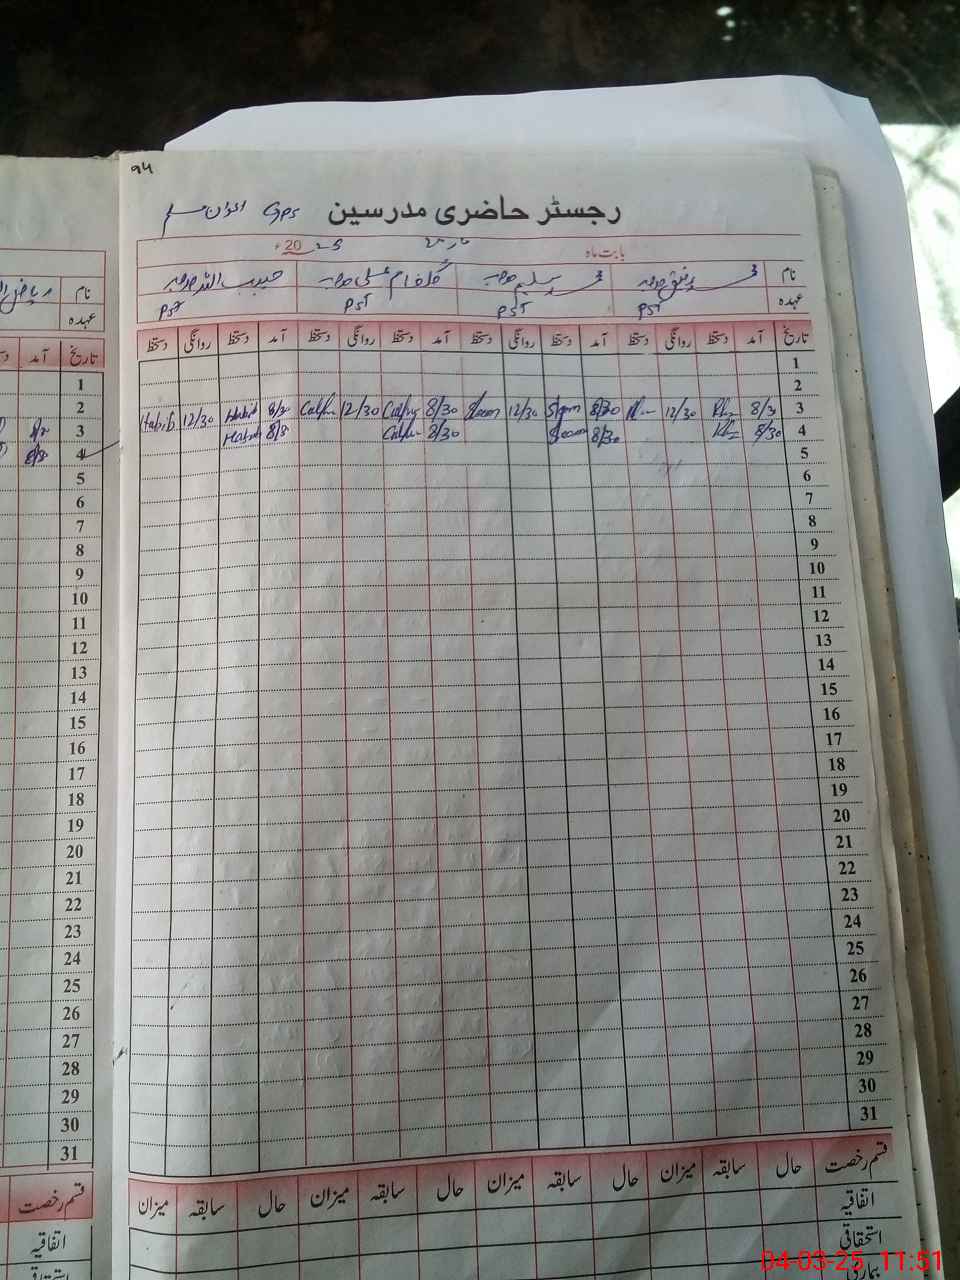 94
رجسٹر حاضری مدرسین GPS اعوان
بابت ماہ مارچ 2025ء
نام محمد رفیق صاحب محمد سلیم صاحب گلفام علی صاحب حبیب اللہ صاحب
عہدہ PST PST PST PST
تاریخ آمد دستخط روانگی دستخط آمد دستخط روانگی دستخط آمد دستخط روانگی دستخط آمد دستخط روانگی دستخط
1
2
3 8/3 12/30 8/30 12/30 8/30 12/30 8/30 Habib 12/30 Habib
4 8/30 8/30 8/30 8/3 Habib
5
6
7
8
9
10
11
12
13
14
15
16
17
18
19
20
21
22
23
24
25
26
27
28
29
30
31
قسم رخصت حال سابقہ میزان حال سابقہ میزان حال سابقہ میزان حال سابقہ میزان
اتفاقیہ
استحقاقی
بیماری
نام ریاض
عہدہ
تاریخ آمد
1
2
3
4
5
6
7
8
9
10
11
12
13
14
15
16
17
18
19
20
21
22
23
24
25
26
27
28
29
30
31
قسم رخصت
اتفاقیہ
04-03-25 11:51